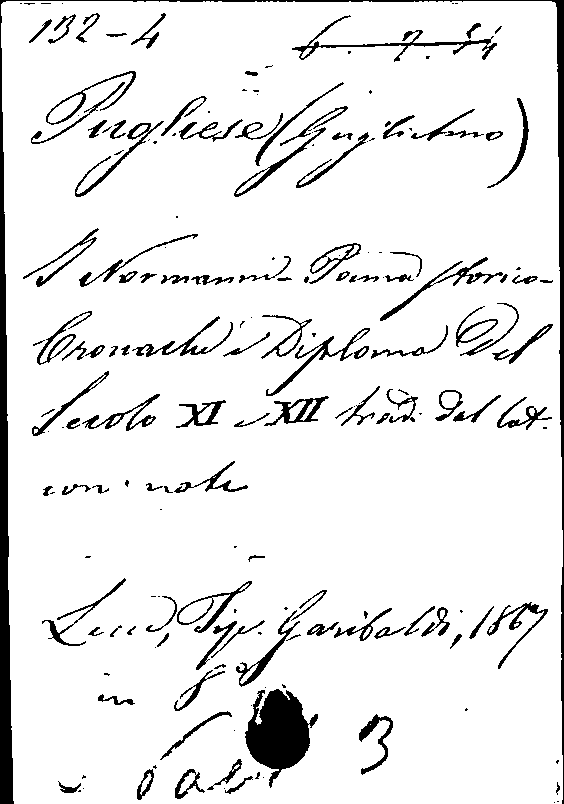 132-4
6. 7. 54
Pugliese (Guglielmo)
I Normanni - Poema storico -
Cronache e Diploma del
Secolo XI e XII trad. dal lat.
con note
Lecce, Tip. Garibaldi, 1867
in 8°
3